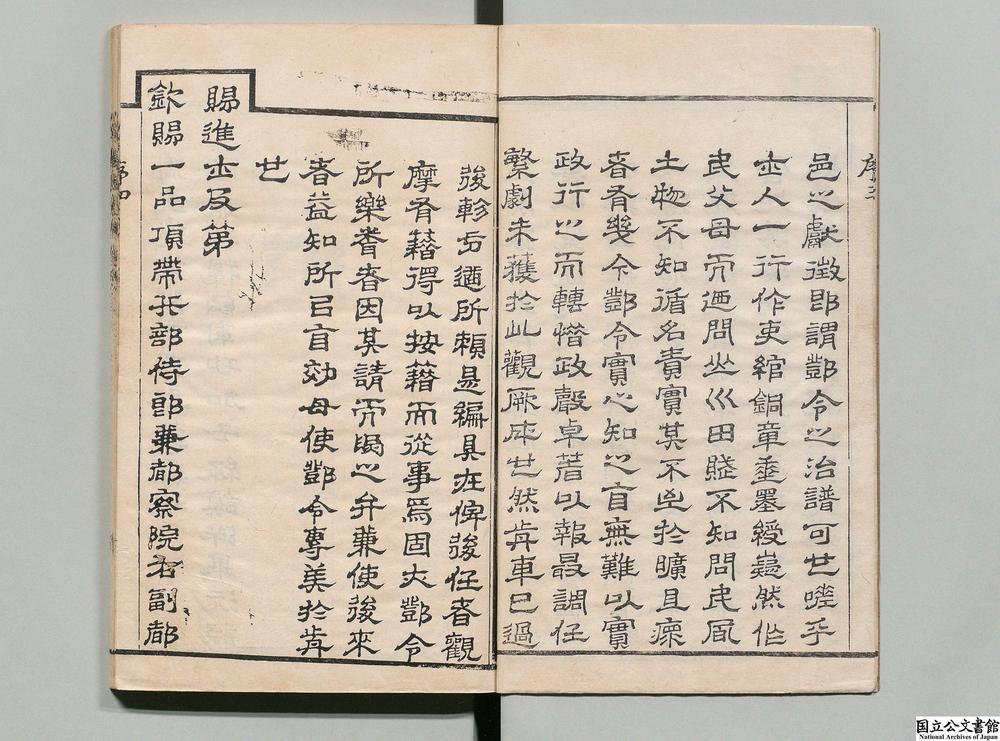 序三
邑之獻徵即謂鄷令之治譜可也嗟乎
士人一行作吏綰銅章垂墨綬嶷然作
民父母而迺問山川田賦不知問民風
土物不知循名責實其不至於曠且瘝
者有幾今鄷令實心知之自無難以實
政行之而轉惜政聲卓著以報最調任
繁劇未獲於此觀厥成也然前車已過
後軫方遒所賴是編具在俾後任者觀
摩有藉得以按籍而從事焉固夫鄷令
所樂耆者因其請而勗之弁兼使後來
者益知所以自効毋使鄷令專美於前
也
賜進士及第
欽賜一品頂帶兵部侍郎兼都察院右副都
序四
国立公文書館
National Archives of Japan